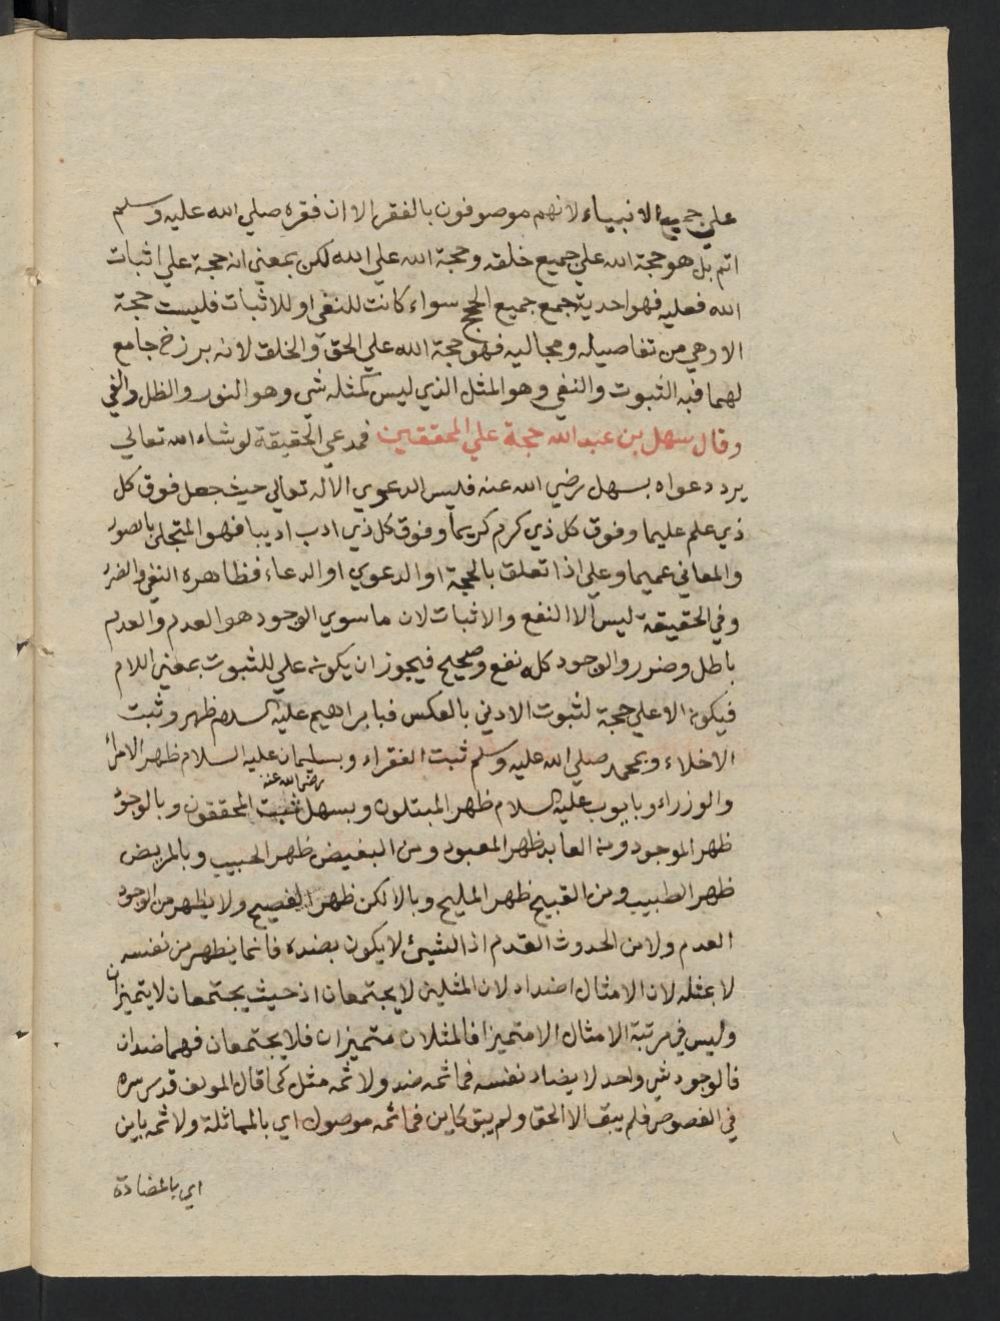 علي جميع الانبياء لانهم موصوفون بالفقر الا ان فقره صلي الله عليه وسلم
اتم بل هو حجة الله علي جميع خلقه وحجة الله علي الله لكن بمعني انه حجة علي اثبات
الله فعليه فهو احدية جمع جميع الحجج سواء كانت للنفي او للاثبات فليست حجة
الا وهي من تفاصيله ومجاليه فهو حجة الله علي الحق والخلق لانه برزخ جامع
لهما فبه الثبوت والنفي وهو المثل الذي ليس كمثله شي وهو النور والظل والفي
وقال سهل بن عبد الله حجة علي المحققين فمدعي الحقيقة لو شاء الله تعالي
يرد دعواه بسهل رضي الله عنه فليس الدعوي الا له تعالي حيث جعل فوق كل
ذي علم عليما وفوق كل ذي كرم كريما وفوق كل ذي ادب اديبا فهو المتجلي بالصور
والمعاني عميما وعلي اذا تعلق بالحجة او الدعوي او الدعاء فظاهره النفي والضرر
وفي الحقيقة ليس الا النفع والاثبات لان ما سوي الوجود هو العدم والعدم
باطل وضرر والوجود كله نفع وصحيح فيجوز ان يكون علي للثبوت بمعني اللام
فيكون الاعلي حجة لثبوت الادني بالعكس فبابراهيم عليه السلام ظهر وثبت
الاخلاء وبمحمد صلي الله عليه وسلم ثبت الفقراء وبسليمان عليه السلام ظهر الامراء
والوزراء وبايوب عليه السلام ظهر المبتلون وبسهل رضي الله عنه ثبت المحققون وبالوجود
ظهر الموجود ومن العابد ظهر المعبود ومن البغيض ظهر الحبيب وبالمريض
ظهر الطبيب ومن القبيح ظهر المليح وبالالكن ظهر الفصيح ولا يظهر من الوجود
العدم ولا من الحدوث القدم اذ الشيئ لا يكون بضده فانما يظهر من نفسه
لا بمثله لان الامثال اضداد لان المثلين لا يجتمعان اذ حيث يجتمعان لا يتميزان
وليس في مرتبة الامثال الا متميزا فالمثلان متميزان فلا يجتمعان فهما ضدان
فالوجود شي واحد لا يضاد نفسه فما ثمه ضد ولا ثمه مثل كما قال المولف قدس سره
في الفصوص فلم يبق الا الحق ولم يبق كاين فما ثمه موصول اي بالمماثلة ولا ثمه باين
اي بالمضادة